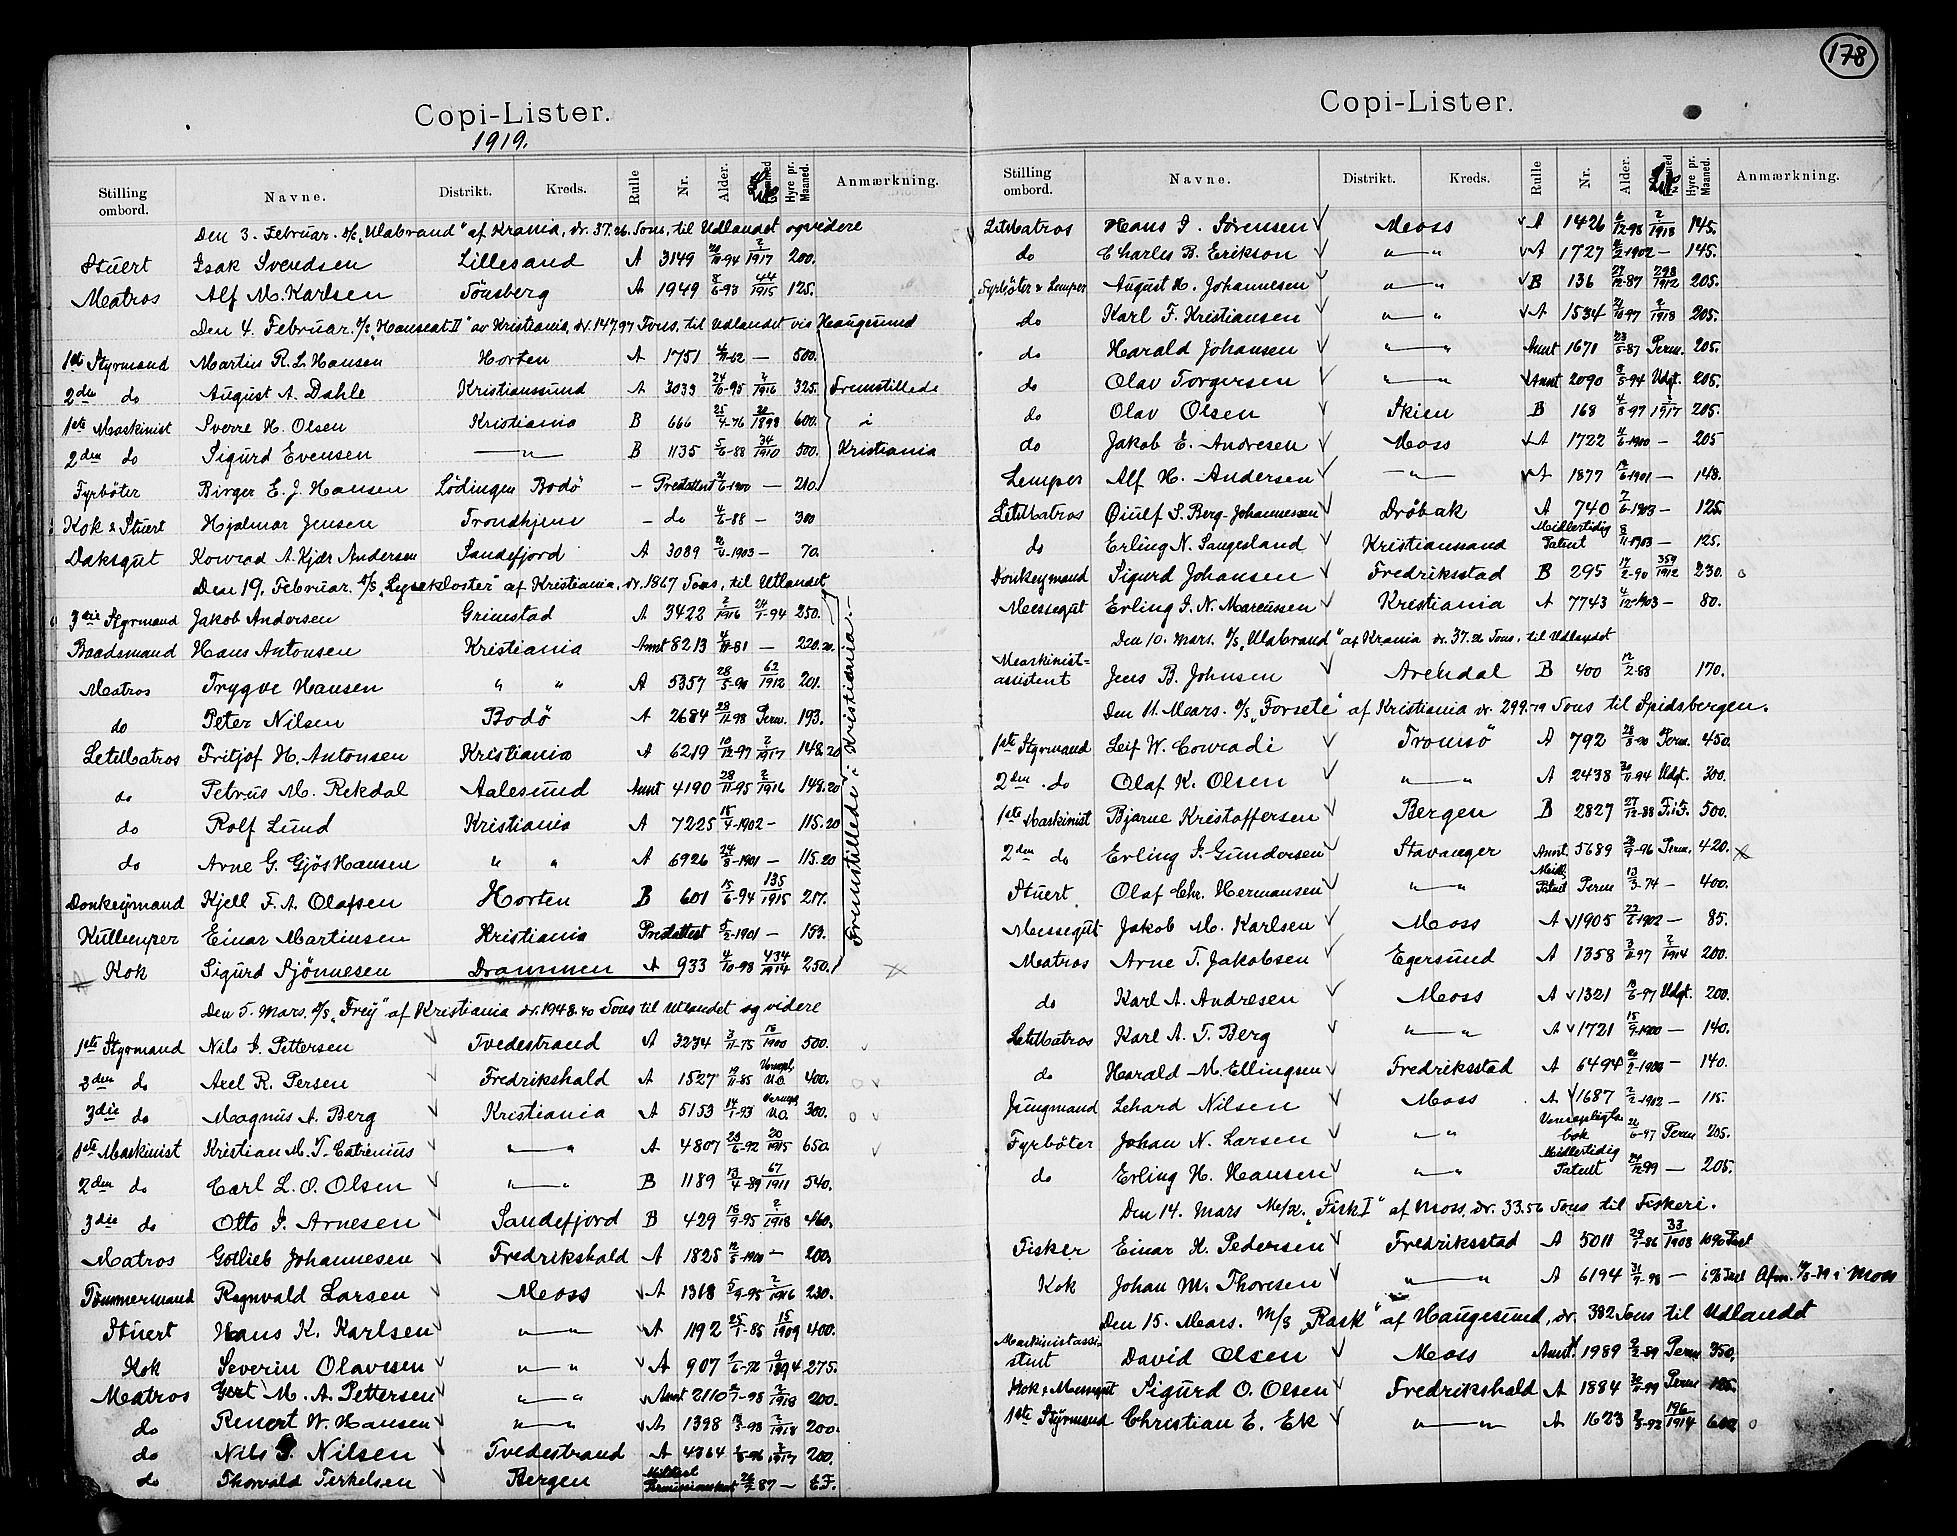 178
Copi-Lister.
1919.
Stilling ombord. Navne. Distrikt. Kreds. Rulle Nr. Alder. Hyre pr. Maaned. Anmærkning.
Den 3. Februar. "Ulabrand" af Krania, dr. 37.26 Tons, til Udlandet og videre
Stuert Isak Svendsen Lillesand A 3149 1917 200.
Matros Alf M. Karlsen Tönsberg A 1949 8/6-93 44/1915 125.
Den 4. Februar. "Hauseat II" av Kristiania, dr. 147,97 Tons, til Udlandet via Haugesund
1ste Styrmand Martin R. L. Hansen Horten A 1751 — 500.
2den do August A. Dahle Kristianssund A 3033 24/6-95 2/1916 325. Fremstillede
1ste Maskinist Sverre H. Olsen Kristiania B 666 25/4-76 1898 600. i
2den do Sigurd Evensen —"— B 1135 5/6-88 34/1910 500. Kristiania
Fyrböter Birger E. J. Hansen Lödingen Bodö - Prestattest — 210.
Kok & Stuert Hjalmar Jensen Trondhjem - do 4/6-88 - 300
Daksgut Konrad A. Kjær Andersen Sandefjord A 3089 -1903 - 70.
Den 19. Februar. "Lysekloster" af Kristiania, dr. 1867 Tons, til Utlandet
3die Styrmand Jakob Andersen Grimstad A 3422 2/1916 24/1-94 250.
Baadsmand Hans Antonsen Kristiania Annt 8213 4/11-81 — 220.20.
Matros Trygve Hansen " " A 5357 28/5-90 62/1912 201.
do Peter Nilsen Bodö A 2684 28/11-98 Perm. 193.
LetMatros Fritjof H. Antonsen Kristiania A 6219 10/12-97 2/1917 148.20
do Petrus M. Rekdal Aalesund Annt 4190 28/11-95 2/1916 148.20
do Rolf Lund Kristiania A 7225 18/4-1902 - 115.20
do Arne G. Gjös Hansen " " A 6926 24/8-1901 - 115.20
Donkeymand Kjell F. A. Olafsen Horten B 601 15/6-94 135/1915 217.
Kullemper Einar Martinsen Kristiania Prestattest 5/2-1901 - 153.
Kok Sigurd Sjönnesen Drammen A 933 4/10-98 434/1914 250.
Fremstillede i Kristiania.
Den 5. Mars. "Frey" af Kristiania dr. 1948.40 Tons til Utlandet og videre
1ste Styrmand Nils J. Pettersen Tvedestrand A 3234 3/11-75 18/1900 500.
2den do Axel R. Persen Fredrikshald A 1527 19/11-85 400.
3die do Magnus A. Berg Kristiania A 5153 14/1-93 300.
1ste Maskinist Kristian M. T. Catrinius —"— A 4807 23/6-92 20/1915 650.
2den do Carl L. O. Olsen —"— B 1189 13/4-89 67/1911 540.
3die do Otto J. Arnesen Sandefjord B 429 18/9-95 2/1918 460.
Matros Gotlieb Johannesen Fredrikshald A 1825 12/5-1900 - 200.
Tömmermand Ragnvald Larsen Moss A 1318 5/9-95 2/1916 230.
Stuert Hans K. Karlsen —"— A 1192 25/1-85 15/1909 400.
Kok Severin Olavesen —"— A 907 7/6-72 9/1894 275.
Matros Gert M. A. Pettersen —"— Annt 2110 -98 2/1918 200.
do Renert W. Hansen —"— A 1398 13/5-98 2/1918 200.
do Nils J. Nilsen Tvedestrand A 4364 -96 2/1917 200.
do Thorvald Terkelsen Bergen 26/2 87 —
Copi-Lister.
Stilling ombord. Navne. Distrikt. Kreds. Rulle Nr. Alder. Hyre pr. Maaned. Anmærkning.
LetMatros Hans J. Sørensen Moss A 1426 6/12-98 2/1918 145.
do Charles B. Erikson —"— A 1727 -1902 - 145.
Fyrböter & Lemper August H. Johannesen —"— B 136 27/12-87 298/1912 205.
do Karl F. Kristiansen —"— A 1534 -97 2/1918 205.
do Harald Johansen —"— Annt 1671 23/5-87 Perm. 205.
do Olav Torgersen —"— Annt 2090 -94 Udgt. 205.
do Olav Olsen Skien B 168 4/8-97 1917 205.
do Jakob E. Andresen Moss A 1722 4/6-1900 - 205
Lemper Alf H. Andersen —"— A 1877 -1901 — 148.
LetMatros Øiulf S. Berg-Johannessen Dröbak A 740 -1903 - 125.
do Erling N. Saugesland Kristianssand Midlertidig Patent 8/11-1903 - 125.
Donkeymand Sigurd Johansen Fredriksstad B 295 17/2-90 359/1912 230.
Messegut Erling J. N. Marcussen Kristiania A 7743 4/12-1903 - 80.
Den 10. Mars. "Ulabrand" af Krania dr. 37.26 Tons, til Udlandet
Maskinist-assistent Jens B. Johnsen Arendal B 400 12/2-88 170.
Den 11. Mars. "Forsete" af Kristiania dr. 299.79 Tons til Spidsbergen.
1ste Styrmand Leif W. Conradi Tromsö A 792 28/8-90 Perm. 450.
2den do Olaf K. Olsen —"— A 2438 -94 Udgt. 300.
1ste Maskinist Bjarne Kristoffersen Bergen B 2827 27/12-88 500.
2den do Erling J. Gundersen Stavanger Annt. 5689 -96 Perm. 420.
Stuert Olaf Chr. Hermansen —"— Midl. Patent Perm 13/3-74 - 400.
Messegut Jakob M. Karlsen Moss A 1905 22/6-1902 - 85.
Matros Arne T. Jakobsen Egersund A 1358 -97 2/1914 200.
do Karl A. Andresen Moss A 1321 18/6-97 Udgt. 200.
LetMatros Karl A. T. Berg —"— A 1721 15/9-1900 - 140.
do Harald M. Ellingsen Fredriksstad A 6494 - 140.
Jungmand Lehard Nilsen Moss A 1687 2/2-1902 - 115.
Fyrböter Johan N. Larsen —"— 26/6-97 Perm 205.
do Erling H. Hansen —"— Midlertidig Patent 24/12 99 — 205.
Den 14. Mars "Fisk I" af Moss, dr. 33.56 Tons til Fiskeri.
Fisker Einar H. Pedersen Fredriksstad A 5011 29/1-86 33/1908 10%
Kok Johan M. Thoresen —"— A 6194 31/7-98 — 6% Afm. i Moss
Den 15. Mars. M/S "Rask" af Haugesund, dr. 382 Tons til Udlandet
Maskinistassistent David Olsen Moss Annt. 1989 -89 Perm 350.
Kok & Messegut Sigurd O. Olsen Fredrikshald A 1884 -99 Perm
1ste Styrmand Christian E. Ek —"— A 1623 -92 196/1914 600